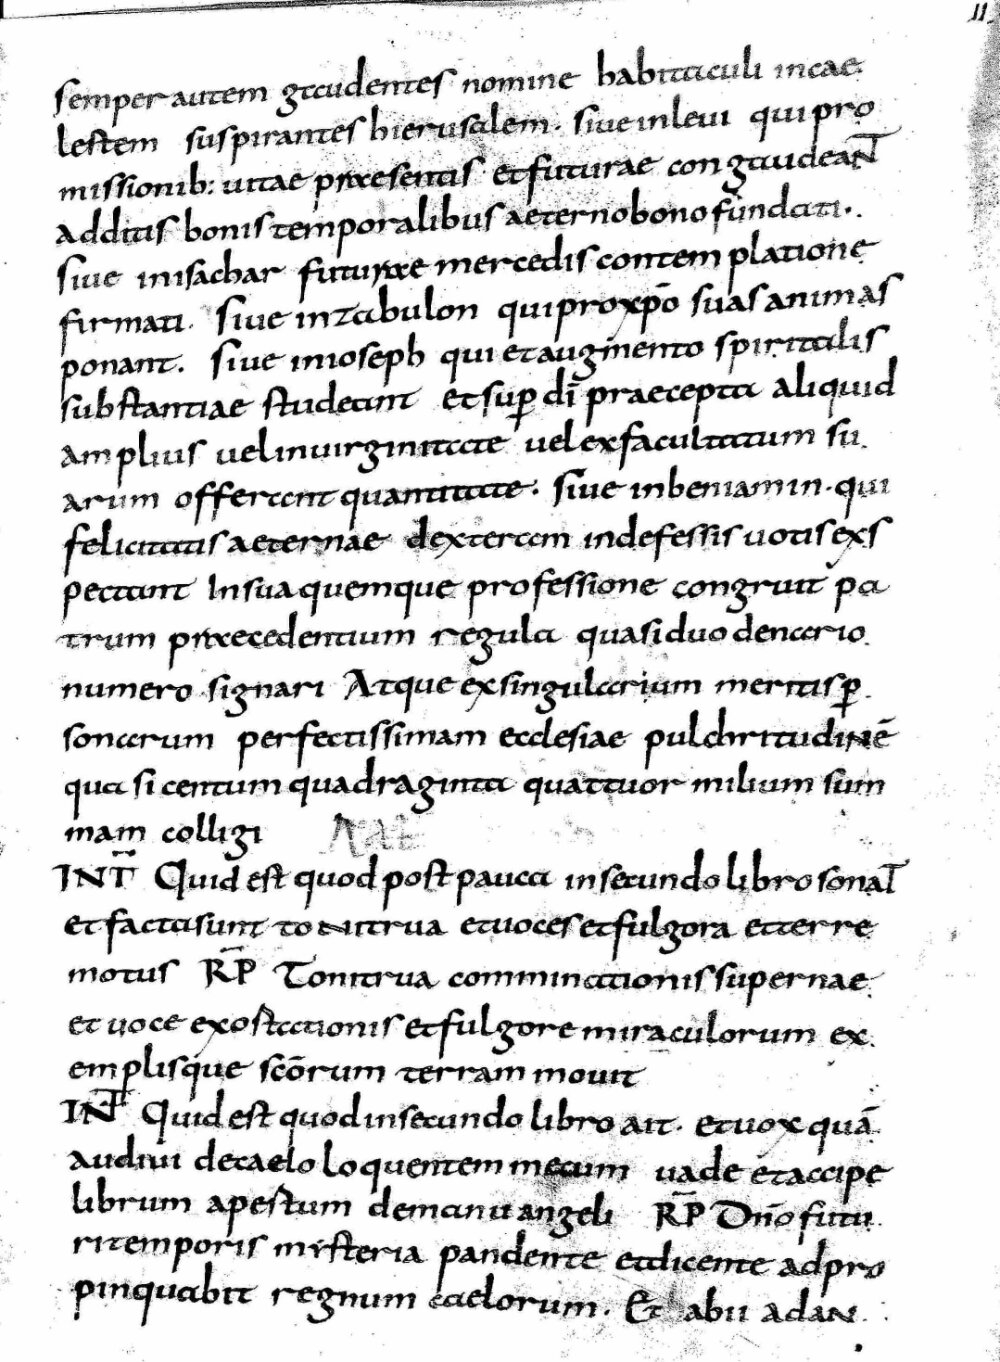 11
semper autem gaudentes nomine habitaculi in cae
lestem suspirantes hierusalem. siue inleui qui pro
missionib: uitae praesentis et futurae congaudeaNT̄
additis bonis temporalibus aeterno bono fundati.
siue inisachar futurae mercedis contemplatione
firmati. siue inzabulon qui pro xp̄o suas animas
ponant. siue inioseph qui et augmento spiritalis
substantiae studeant et sup̱ dī praecepta aliquid
amplius uel inuirginitate uel ex facultatum su
arum offerant quantitate. siue inbeniamin. qui
felicitatis aeternae dexteram indefessis uotis exs
pectant In sua quemque professione congruit pa
trum praecedentium regula quasi duodenario
numero signari Atque ex singularium meritis p̱
sonarum perfectissimam ecclesiae pulchritudiNē
quasi centum quadraginta quattuor milium sum
mam colligi
INT̄ Quid est quod post pauca in secundo libro sonaT̄
et facta sunt toNitrua et uoces et fulgora et terre
motus R̄P Tonitrua comminationis supernae
et uoce exostationis et fulgore miraculorum ex
emplisque scōrum terram mouit
INT̄ Quid est quod in secundo libro ait. et uox quā
audiui de caelo loquentem mecum uade et accipe
librum apestum de manu angeli R̄P Dn̄o futu
ri temporis mysteria pandente et dicente adpro
pinquabit regnum caelorum. Et abii adaN